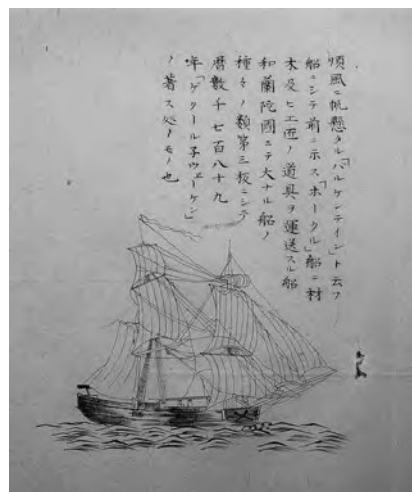 順風ニ帆懸タル「バルケンテイン」ト云フ
船ニシテ前ニ示ス「ホークル」船ニ材
木及ヒ工匠ノ道具ヲ運送スル船
和蘭陀國ニテ大ナル船ノ
種々ノ類第三板ニシテ
暦数千七百八十九
年「ゲクールネウェーケン」
ノ著ス処ノモノ也